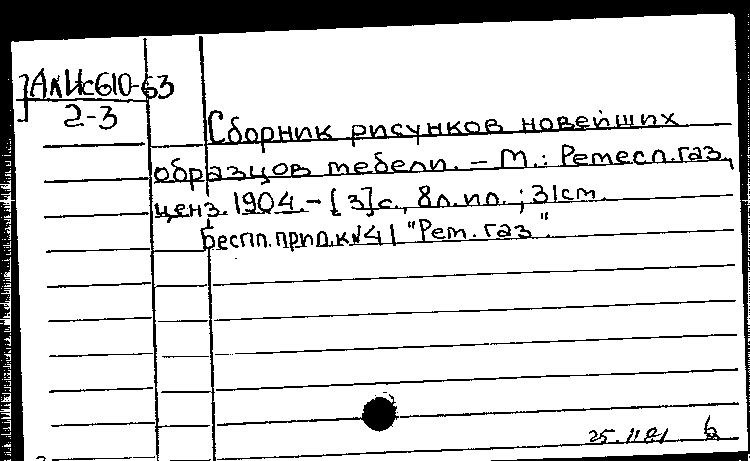 АлИс610-63
2-3
Сборник рисунков новейших
образцов мебели. – М.: Ремесл. газ.,
ценз. 1904. – [3]с., 8л. ил.; 31см.
Беспл. прил. к №41 "Рем. газ".